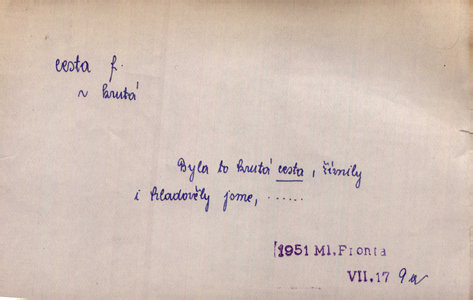 cesta f.
~ krutá
Byla to krutá cesta, žíznily
i hladověly jsme, ......
1951 Ml. Fronta
VII. 17 9a